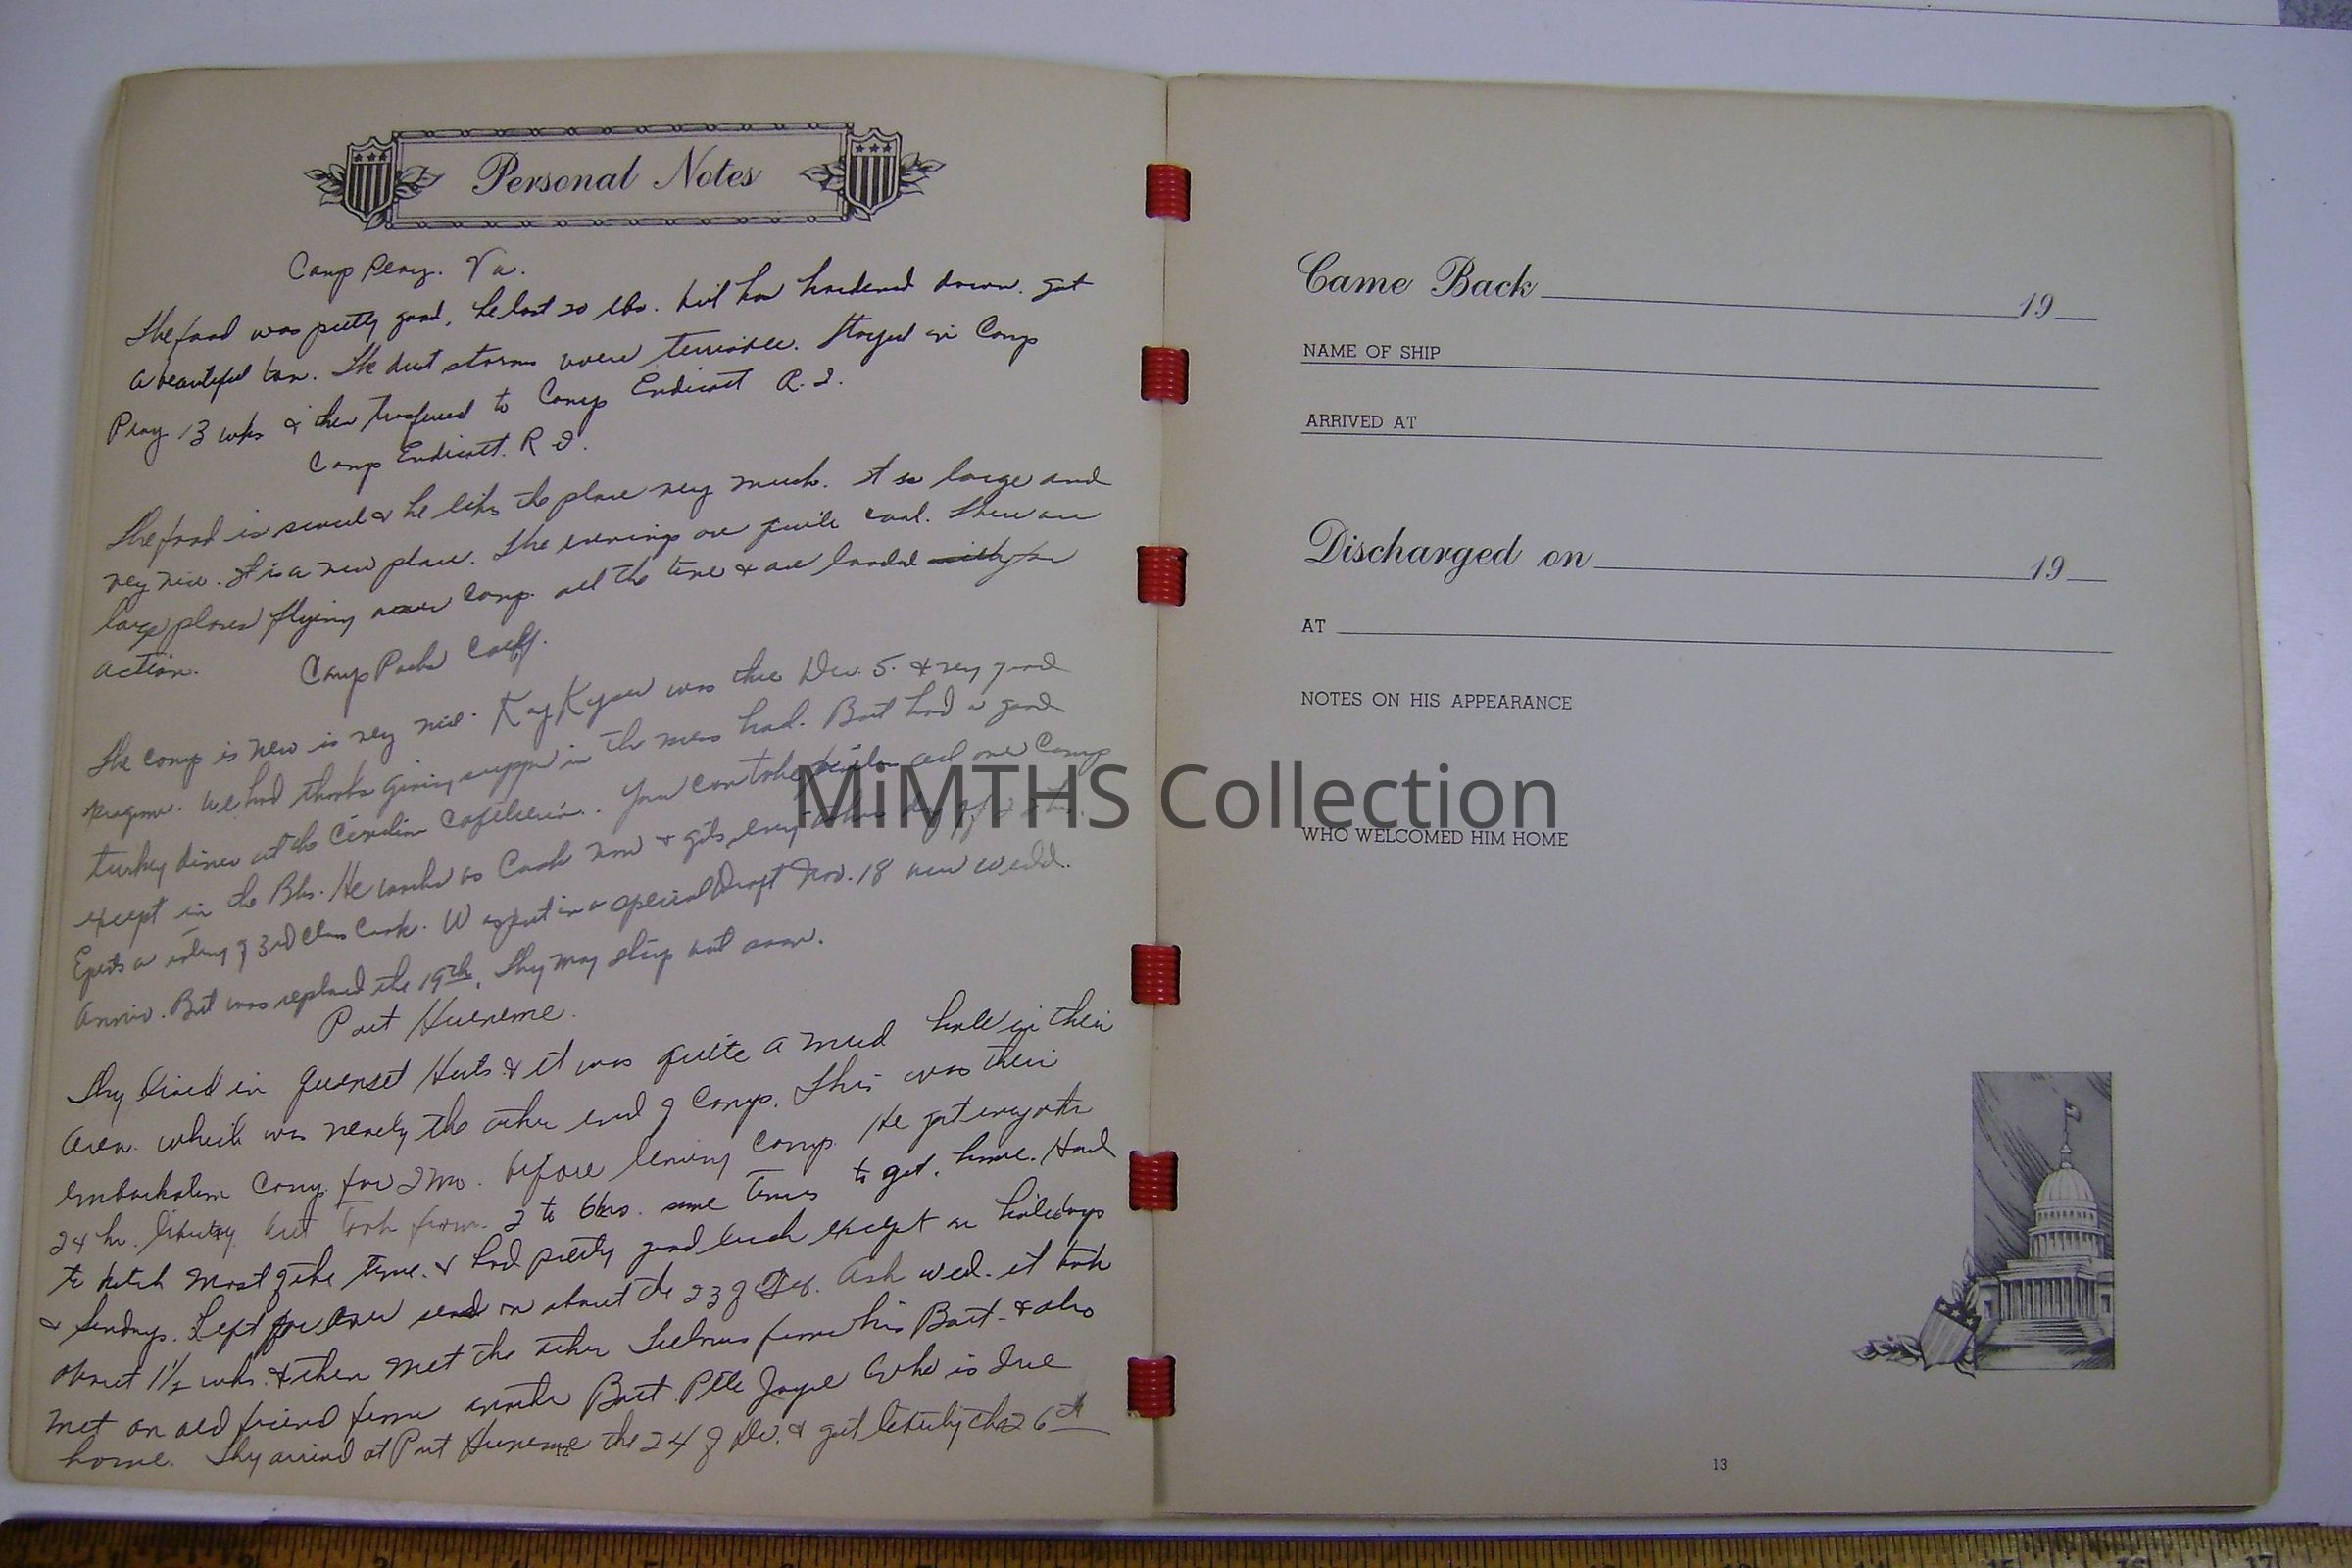 Personal Notes
Camp Peary. Va.
The food was pretty good, he lost 20 lbs. but has hardened down. got
a beautiful tan. The dust storms were terrible. Stayed in Camp
Peary 13 wks & then transferred to Camp Endicott R. I.
Camp Endicott. R I.
The food is swell & he likes the place very much. It is large and
very nice. It is a new place. The evenings are quite cool. There are
large planes flying over camp all the time & are loaded for
action.
Camp Parks Calif.
The camp is new is very nice. Kay Kyser was there Dec. 5. & very good
program. We had thanks giving supper in the mess hall. But had a good
turkey diner at the Civilian Cafeteria. You can take all over Camp
except in the Bks. He works as Cook now & gets every other day off
Expects a rating of 3rd Class Cook. Was put in a special Draft Nov. 18 our Wedd.
Anniv. But was replaced the 19th. They may ship out soon.
Port Hueneme.
They lived in Quonset Huts & it was quite a mud hole in their
area. which was nearly the other end of Camp. This was their
embarkation Camp for 2 mo. before leaving Camp. He got every other
24 hr. liberty but took from 2 to 6 hrs. some times to get home. Had
to hitch most of the time. & had pretty good luck except on holidays
& Sundays. Left for over seas on about the 23 of Feb. Ash Wed. it took
about 1 1/2 wks. & then met the other from his Batt. & also
met an old friend from another Batt. Pete Joyce who is due
home. They arrived at Port Hueneme the 24 of Dec. & got liberty the 26th
Came Back 19
NAME OF SHIP
ARRIVED AT
Discharged on 19
AT
NOTES ON HIS APPEARANCE
MiMTHS Collection
WHO WELCOMED HIM HOME
13